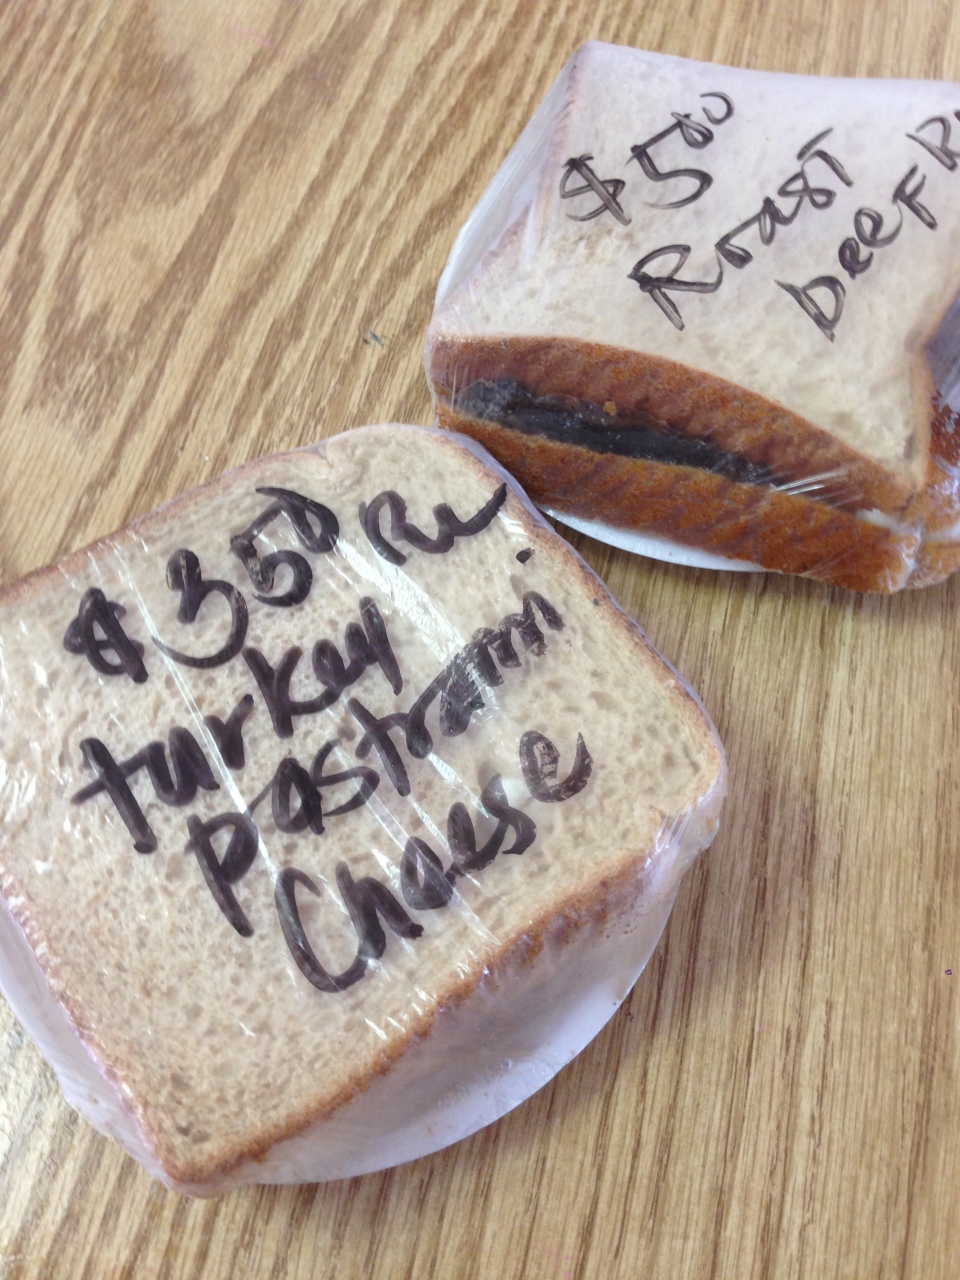 $3.50 Rw.
turkey
pastrami
Chaese
$5.00
Roast
beef R